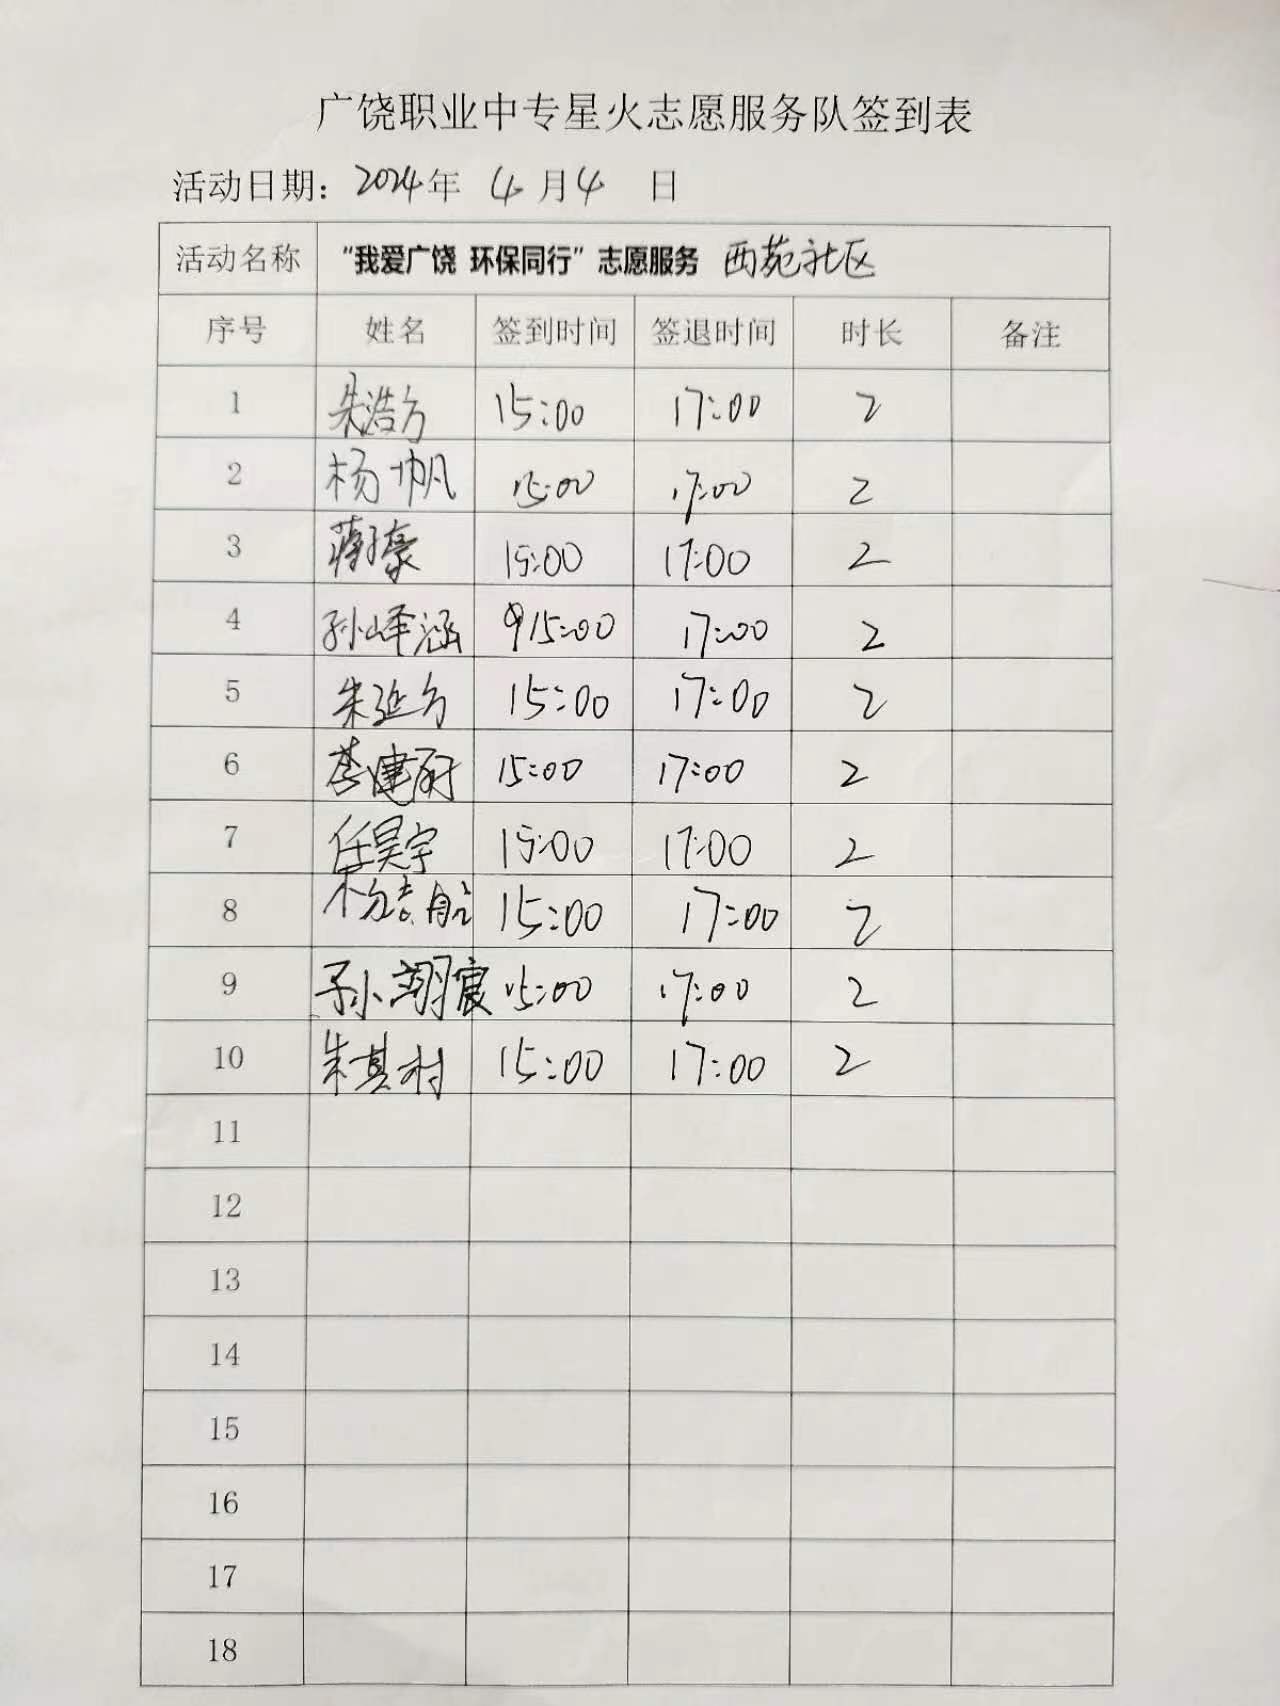 广饶职业中专星火志愿服务队签到表
活动日期：2024年 4月4 日
活动名称 “我爱广饶 环保同行”志愿服务 西苑社区
序号 姓名 签到时间 签退时间 时长 备注
1 朱浩方 15:00 17:00 2
2 杨帆 15:00 17:00 2
3 蒋豪 15:00 17:00 2
4 孙峄涵 15:00 17:00 2
5 朱延方 15:00 17:00 2
6 15:00 17:00 2
7 任昊宇 15:00 17:00 2
8 15:00 17:00 2
9 孙翊宸 15:00 17:00 2
10 朱其村 15:00 17:00 2
11
12
13
14
15
16
17
18